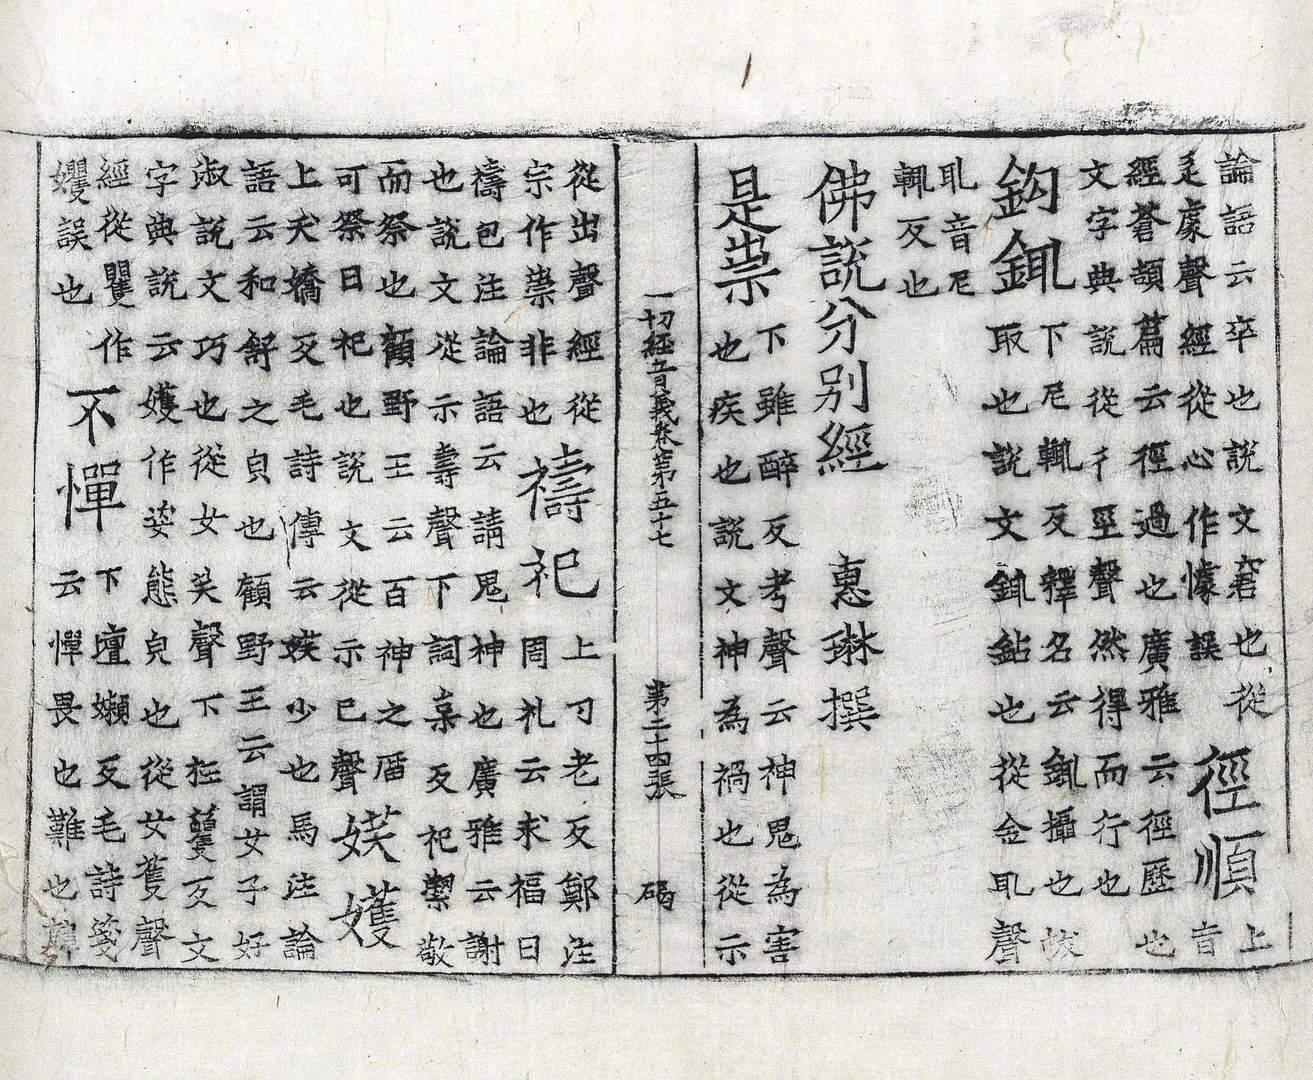 論語云卒也說文窘也從
辵豦聲經從心作懅誤
徑順
上
音
經蒼頡篇云徑過也廣雅云徑歷也
文字典說從彳巠聲然得而行也
鈎鉺
下尼輒反釋名云鉺攝也
取也說文鉺鉆也從金耴聲
耴音尼
輒反也
佛說分別經 惠琳撰
是祟
下雖醉反考聲云神鬼為害
也疾也說文神為禍也從示
一切經音義卷第五十七 第二十四張 碣
從出聲經從
宗作崇非也
禱祀
上刁老反鄭注
周礼云求福曰
禱包注論語云請鬼神也廣雅云謝
也說文從示壽聲下詞枲反祀潔敬
而祭也顧野王云百神之
可祭曰祀也說文從示巳聲
媄嬳
上夭嬌反毛詩傳云媄少也馬注論
語云和舒之皃也顧野王云謂女子好
淑說文巧也從女芙聲下
反文
字典說云嬳作姿態皃也從女蒦聲
經從瞿作
嬳誤也
不憚
下壇嬾反毛詩箋
云憚畏也難也韓